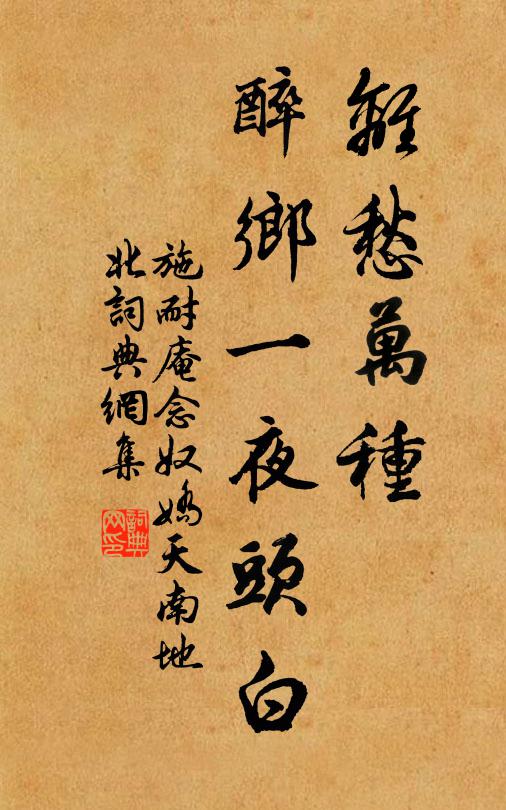 離愁萬種
醉鄉一夜頭白
施耐庵念奴嬌天南地
北詞典網集
詞典
网印